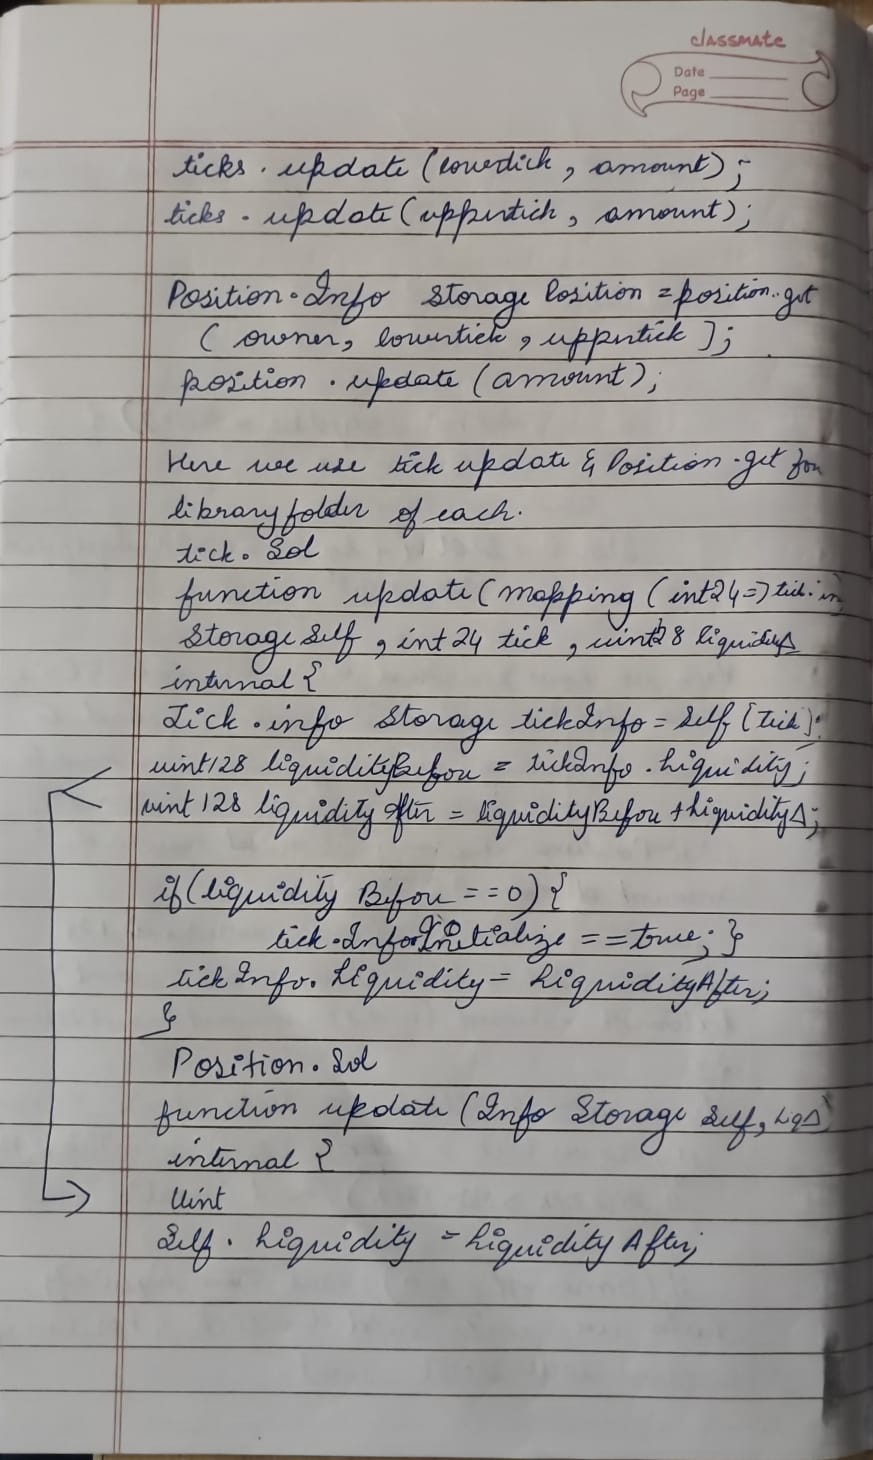 classmate
Date
Page
ticks.update(lowertick, amount);
ticks.update(uppertick, amount);
Position.Info Storage Position = position.get
(owner, lowertick, uppertick];
position.update(amount);
Here we use tick update & Position.get for
library folder of each.
tick.Sol
function update(mapping (int24=>tick.in
Storage Self, int24 tick, uint128 liquidityΔ
internal {
Tick.info Storage tickInfo = Self[tick];
uint128 liquidityBefore = tickInfo.liquidity;
uint128 liquidity after = liquidityBefore + liquidityΔ;
if(liquidity Before == 0) {
tick.Info Initialize == true; }
tickInfo.liquidity = liquidityAfter;
}
Position.Sol
function update (Info Storage Self, LiqΔ
internal {
Uint
Self.liquidity = liquidity After;